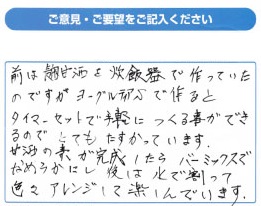 ご意見・ご要望をご記入ください
前は麹甘酒を炊飯器で作っていた
のですがヨーグルティアで作ると
タイマーセットで手軽につくる事ができ
るのでとてもたすかっています。
甘酒の素が完成したらバーミックスで
なめらかにし後は水で割って
色々アレンジして楽しんでいます。